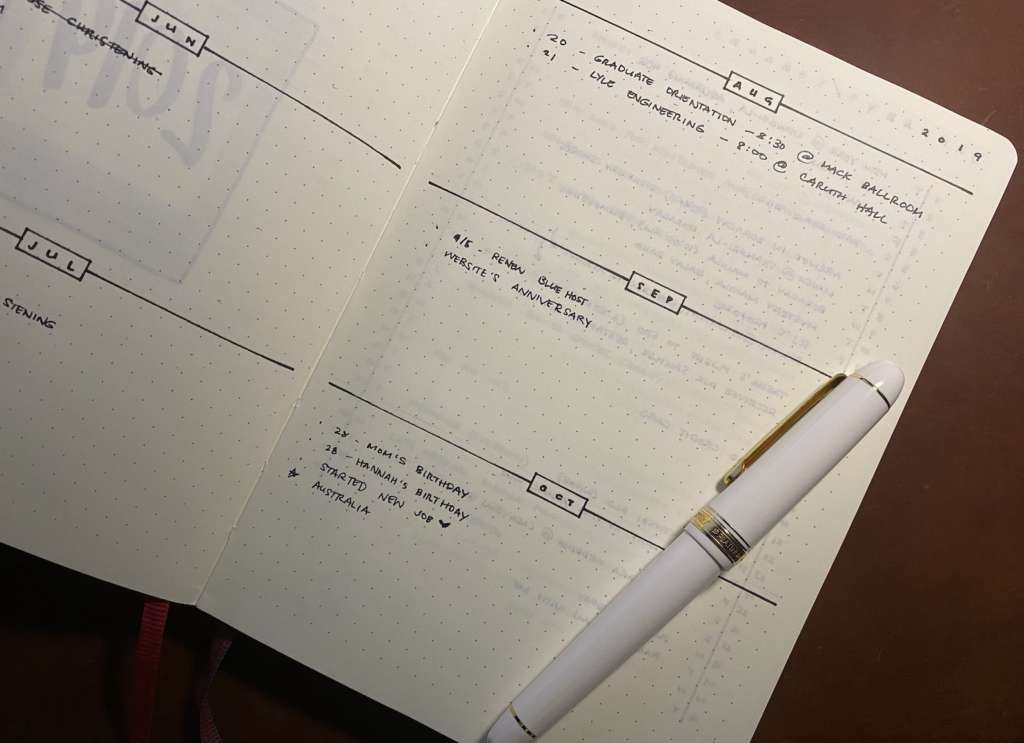 JUN
CHRISTENING
JUL
STENING
2019
AUG
20 - GRADUATE ORIENTATION - 8:30 @ MACK BALLROOM
21 - LYLE ENGINEERING - 8:00 @ CARUTH HALL
SEP
9/5 - RENEW BLUE HOST
WEBSITE'S ANNIVERSARY
OCT
28 - MOM'S BIRTHDAY
28 - HANNAH'S BIRTHDAY
STARTED NEW JOB ♥
AUSTRALIA